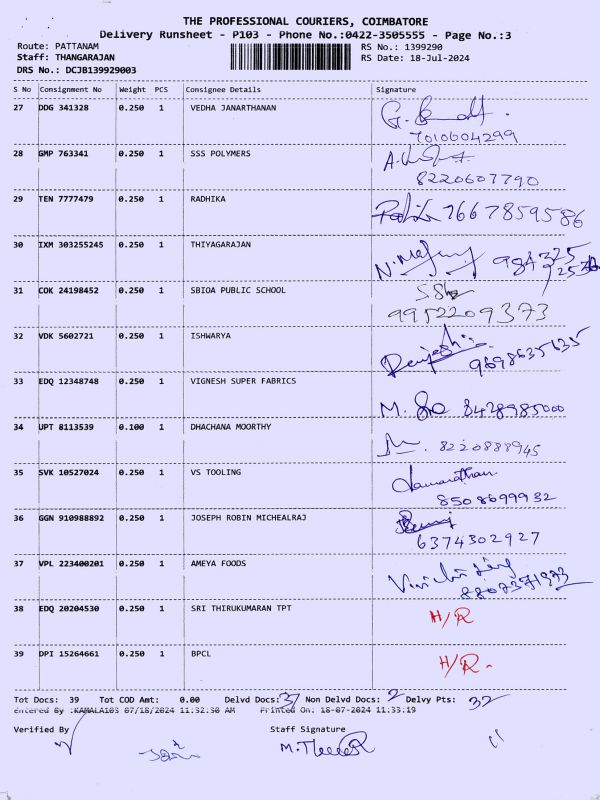 THE PROFESSIONAL COURIERS, COIMBATORE
Delivery Runsheet - P103 - Phone No.:0422-3505555 - Page No.:3
Route: PATTANAM RS No.: 1399290
Staff: THANGARAJAN RS Date: 18-Jul-2024
DRS No.: DCJB139929003
S No Consignment No Weight PCS Consignee Details Signature
27 DDG 341328 0.250 1 VEDHA JANARTHANAN
7010604299
28 GMP 763341 0.250 1 SSS POLYMERS
8220607790
29 TEN 7777479 0.250 1 RADHIKA
7667859586
30 IXM 303255245 0.250 1 THIYAGARAJAN
31 COK 24198452 0.250 1 SBIOA PUBLIC SCHOOL
9952209373
32 VDK 5602721 0.250 1 ISHWARYA
9698635635
33 EDQ 12348748 0.250 1 VIGNESH SUPER FABRICS
8428985000
34 UPT 8113539 0.100 1 DHACHANA MOORTHY
8220888945
35 SVK 10527024 0.250 1 VS TOOLING
8508699932
36 GGN 910988892 0.250 1 JOSEPH ROBIN MICHEALRAJ
6374302927
37 VPL 223400201 0.250 1 AMEYA FOODS
38 EDQ 20204530 0.250 1 SRI THIRUKUMARAN TPT H/R
39 DPI 15264661 0.250 1 BPCL H/R.
Tot Docs: 39 Tot COD Amt: 0.00 Delvd Docs: 37 Non Delvd Docs: 2 Delvy Pts: 32
Entered By :KAMALA103 07/18/2024 11:32:30 AM Printed On: 18-07-2024 11:33:19
Verified By Staff Signature